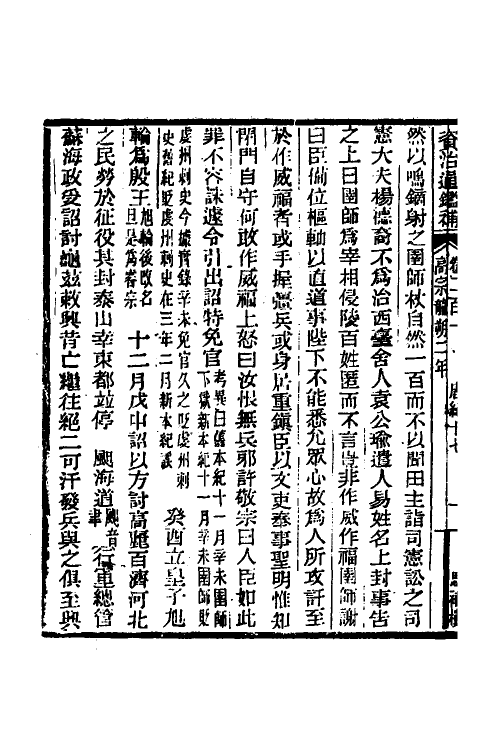 資治通鑑補 卷二百一 高宗龍朔二年 唐紀十七
然以鳴鏑射之圉師杖自然一百而不以聞田主詣司憲訟之司
憲大夫楊德裔不爲治西臺舍人袁公瑜遣人易姓名上封事告
之上曰圉師爲宰相侵陵百姓匿而不言豈非作威作福圉師謝
曰臣備位樞軸以直道事陛下不能悉允眾心故爲人所攻訐至
於作威福者或手握彊兵或身居重鎮臣以文吏奉事聖明惟知
閉門自守何敢作威福上怒曰汝恨無兵邪許敬宗曰人臣如此
罪不容誅遽令引出詔特免官考異曰舊本紀十一月辛未圉師
下獄新本紀十一月辛未圉師貶
虔州刺史今據實錄辛未免官久之貶虔州刺
史舊紀貶虔州刺史在三年二月新本紀誤 癸酉立皇子旭
輪爲殷王旭輪後改名
旦是爲睿宗 十二月戊申詔以方討高麗百濟河北
之民勞於征役其封泰山幸東都竝停 䫻海道䫻音
聿 行軍總管
蘇海政受詔討龜茲敕興昔亡繼往絕二可汗發兵與之俱至興